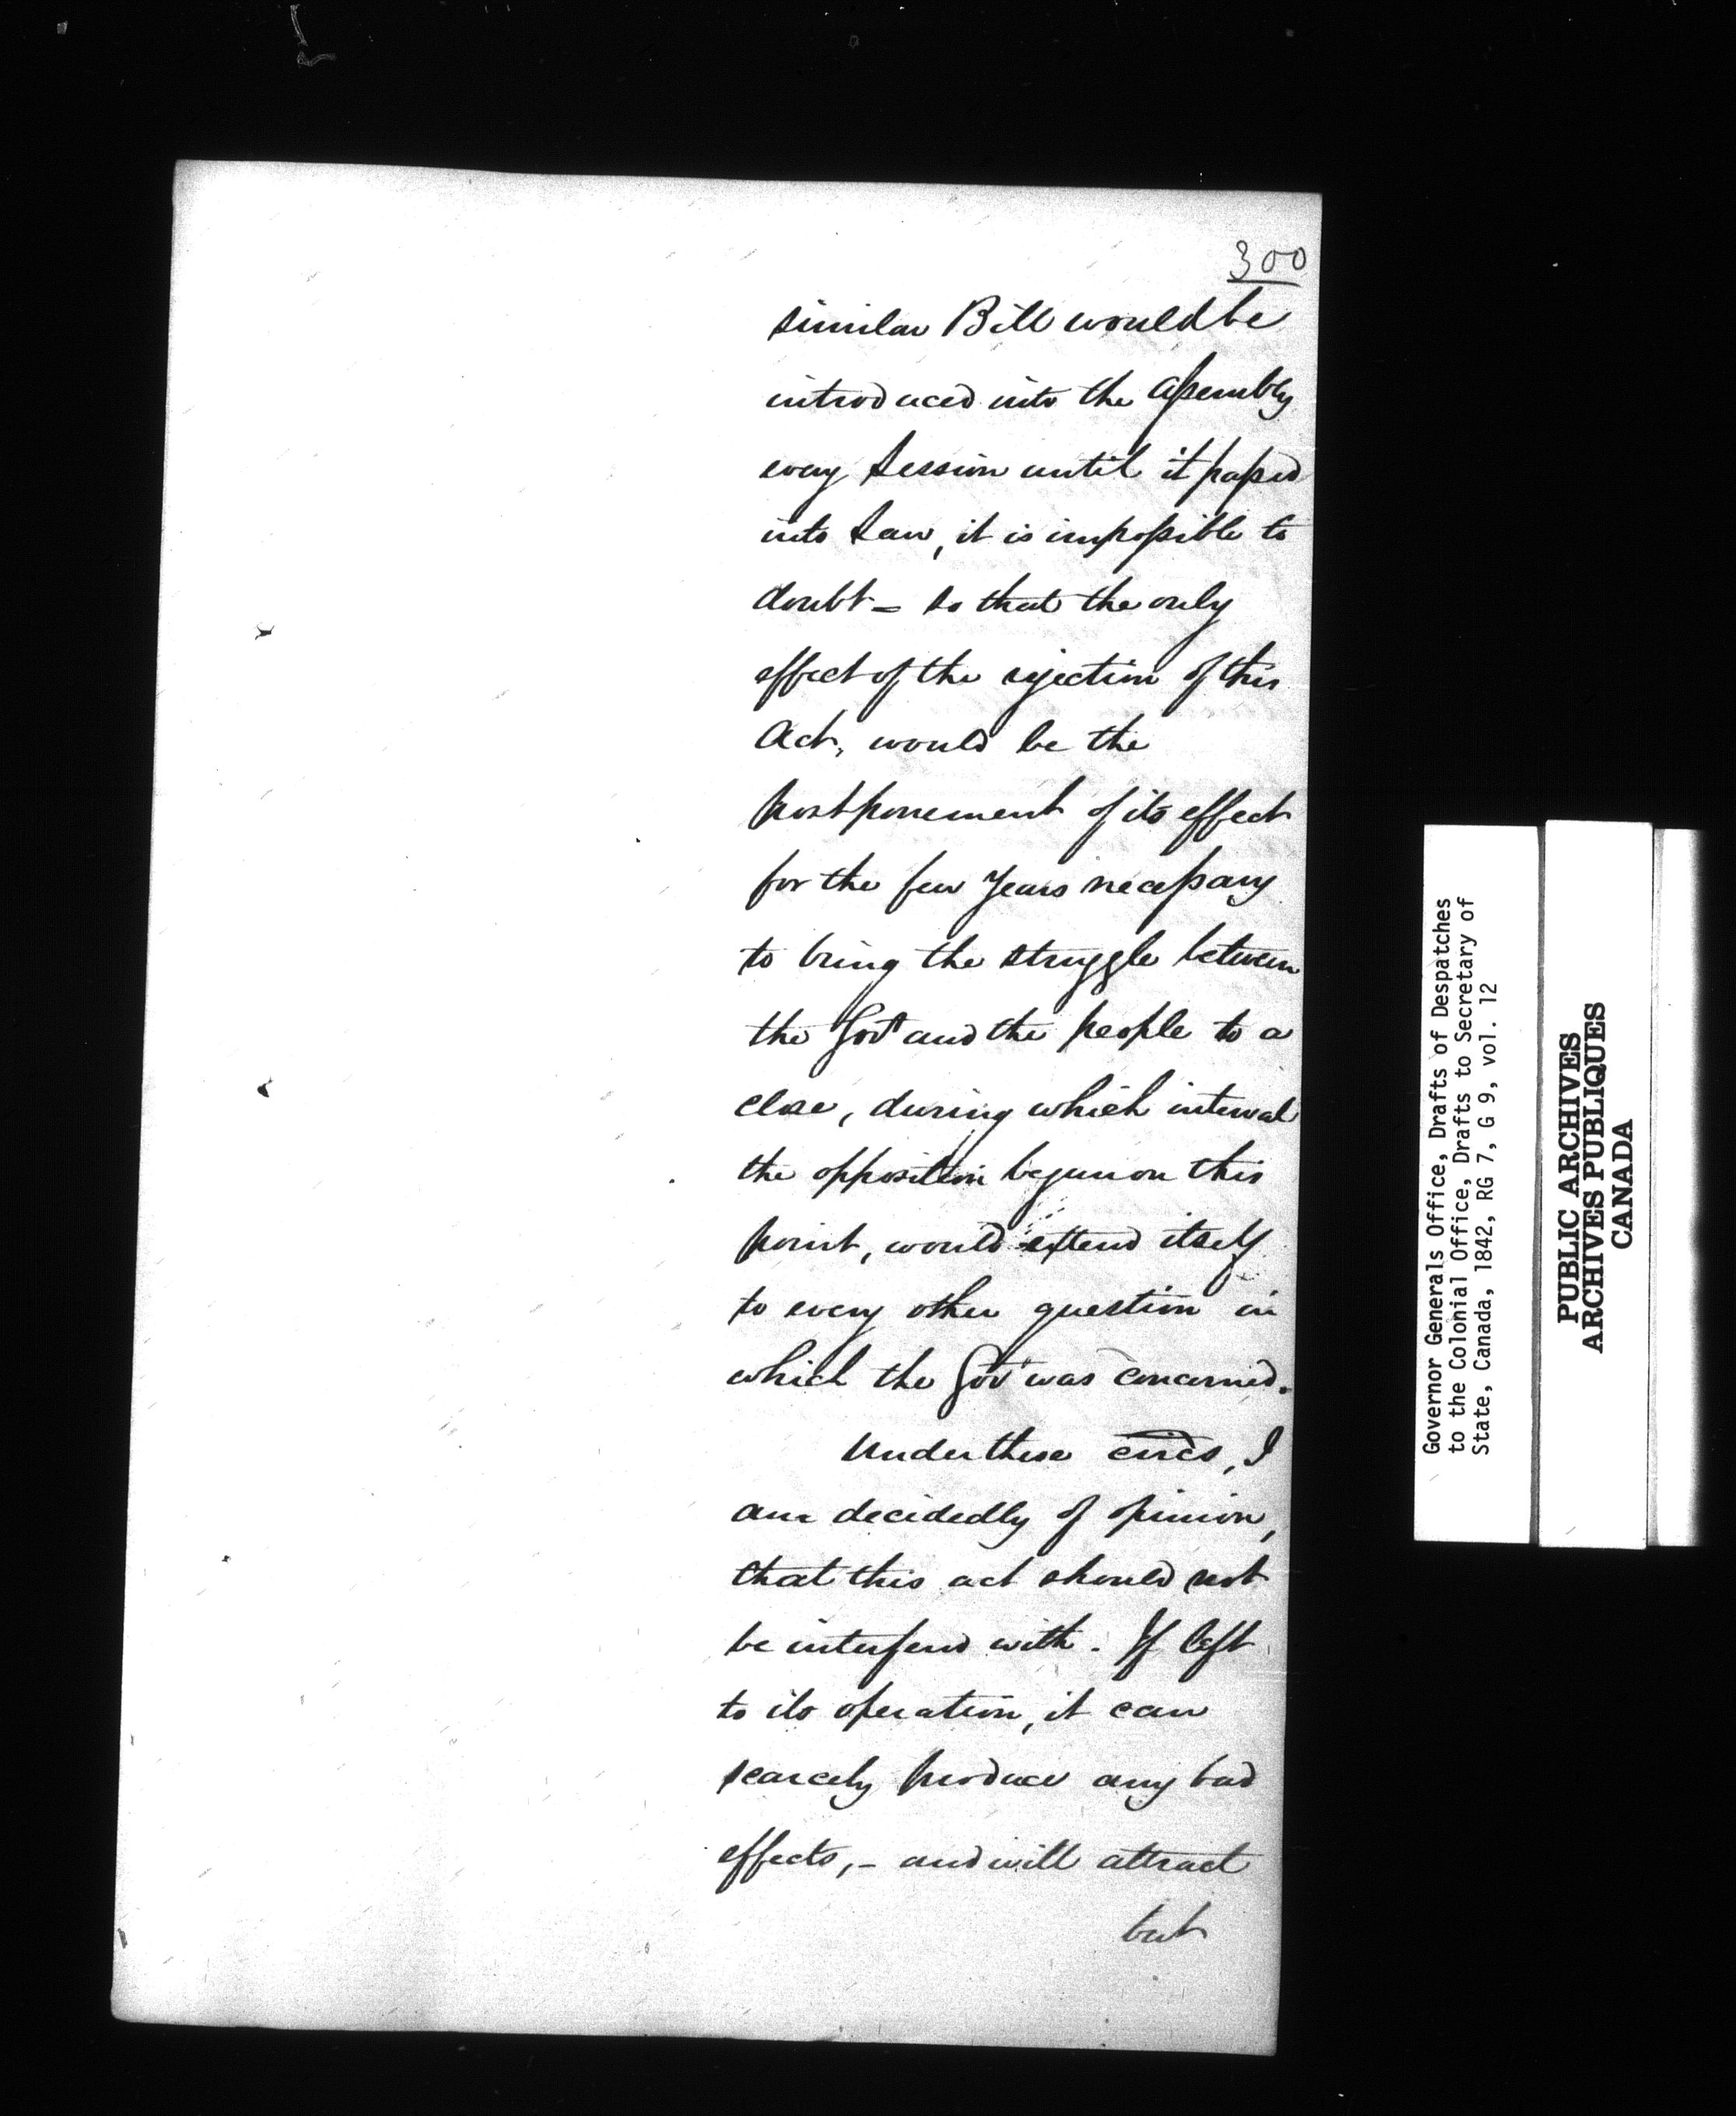 300
similar Bill would be
introduced into the Assembly
every Session until it passed
into Law, it is impossible to
doubt – so that the only
effect of the rejection of this
Act, would be the
postponement of its effect
for the few Years necessary
to bring the struggle between
the Govt and the people to a
close, during which interval
the opposition begun on this
point, would extend itself
to every other question in
which the Govt was concerned.
Under these circs, I
am decidedly of opinion,
that this act should not
be interfered with. If left
to its operation, it can
scarcely produce any bad
effects, – and will attract
but
Governor Generals Office, Drafts of Despatches
to the Colonial Office, Drafts to Secretary of
State, Canada, 1842, RG 7, G 9, vol. 12
PUBLIC ARCHIVES
ARCHIVES PUBLIQUES
CANADA